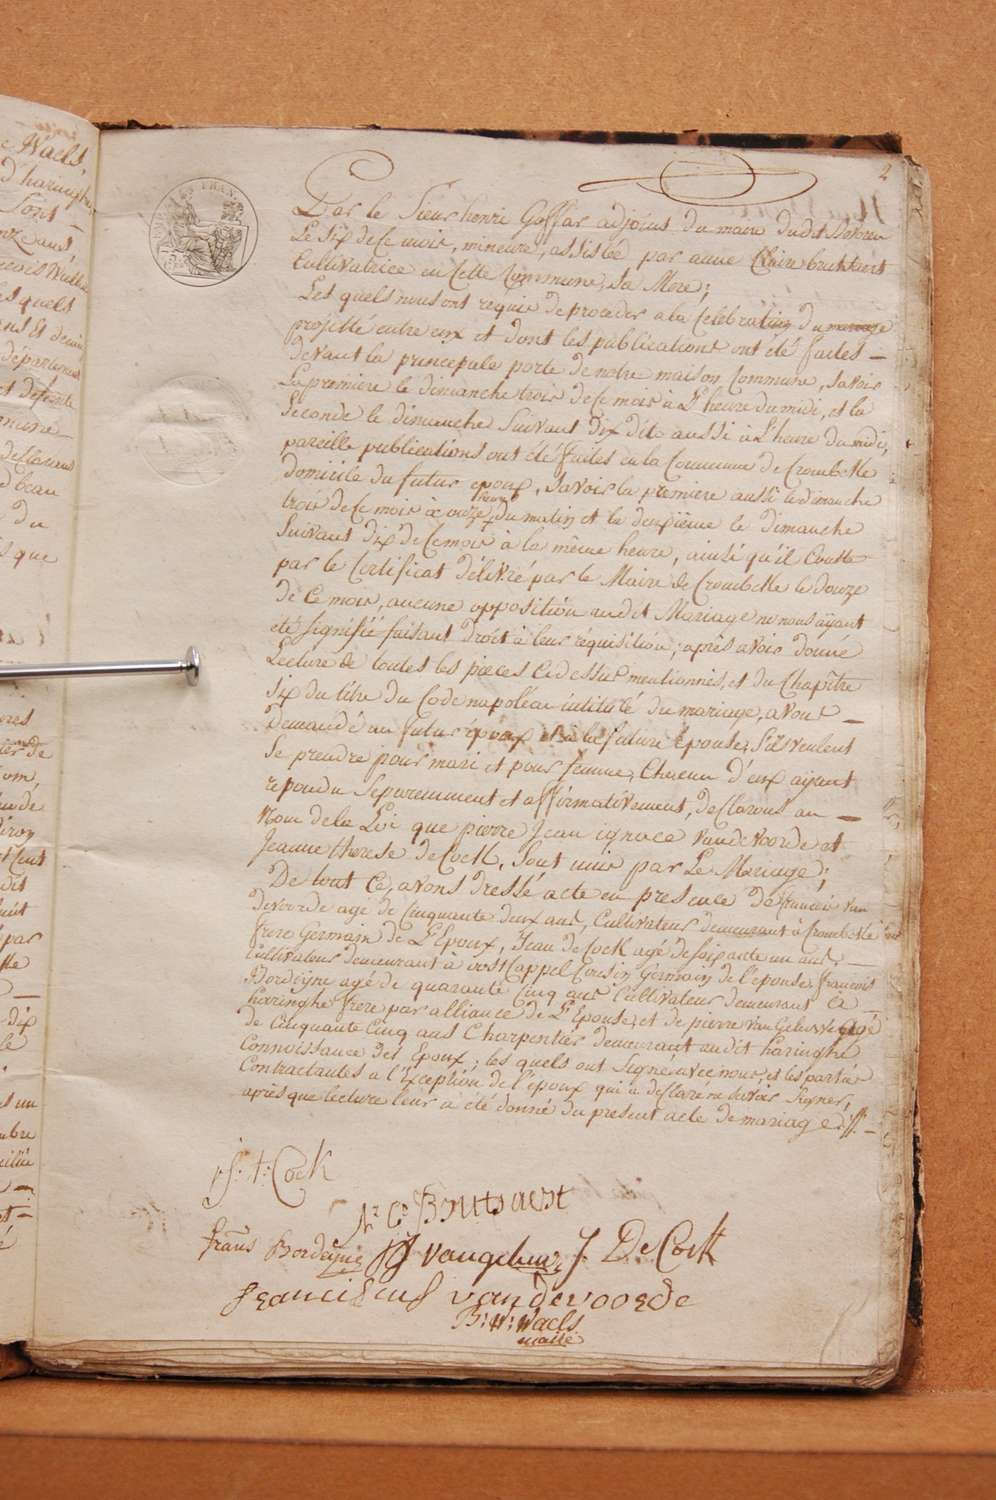 4
Par le Sieur henri Gaffar adjoint du maire dudit
Le six de ce mois, mineure, assistée par anne Claire
Cultivatrice en Cette Commune, Sa Mere;
Les quels nous ont requis de proceder a la Célébration du mariage
projetté entre eux et dont les publications ont été faites —
devant la principale porte de notre maison Commune, Savoir
La premiere le dimanche trois de ce mois à l'heure du midi, et la
Seconde le dimanche Suivant dix dito aussi à l'heure du midi,
pareille publications ont été faites en la Commune de Crombeke
domicile du futur epoux, Savoir la premiere aussi le dimanche
trois de ce mois à onze heures du matin et la deuxième le dimanche
Suivant dix de ce mois à la même heure, ainsi qu'il Conste
par le Certificat délivré par le Maire de Crombeke le douze
de ce mois, aucune opposition audit Mariage ne nous aÿant
été signifiée faisant droit à leur requisition; après avoir donné
Lecture de toutes les pièces Cidessus mentionnés, et du Chapître
Six du titre du Code napoléon intitulé du mariage, avons —
Demandé au futur époux et à la future Epouse, S'ils veulent
Se prendre pour mari et pour femme, Chacun d'eux aÿant
repondu Séparemment et affirmativement, declarons au —
Nom de la Loi que pierre Jean ignace vandevoorde et
Jeanne therese de Cock, Sont unis par Le Mariage;
De tout Ce, avons dressé acte en presence de francois van
devoorde agé de Cinquante deux ans, Cultivateur demeurant à Crombeke
frere Germain de L'Epoux, Jean de Cock agé de soixante un ans —
Cultivateur demeurant à oostCappel Cousin Germain de l'epouse, francois
Bordeÿne agé de quarante Cinq ans Cultivateur demeurant à
haringhe frere par alliance de l'Epouse, et de pierre van agé
de Cinquante Cinq ans Charpentier demeurant audit haringhe
Connoissance des Epoux; les quels ont Signé avec nous, et les parties
Contractantes a l'Exception de l'époux qui a declaré ne savoir Signer,
après que lecture leur a été donné du present acte de mariage
j: t: Cock
A: C: Boutsaert
frans Bordeyne vangeluwe J De Cock
franciscus van devoorde
B: W: Waels
maire